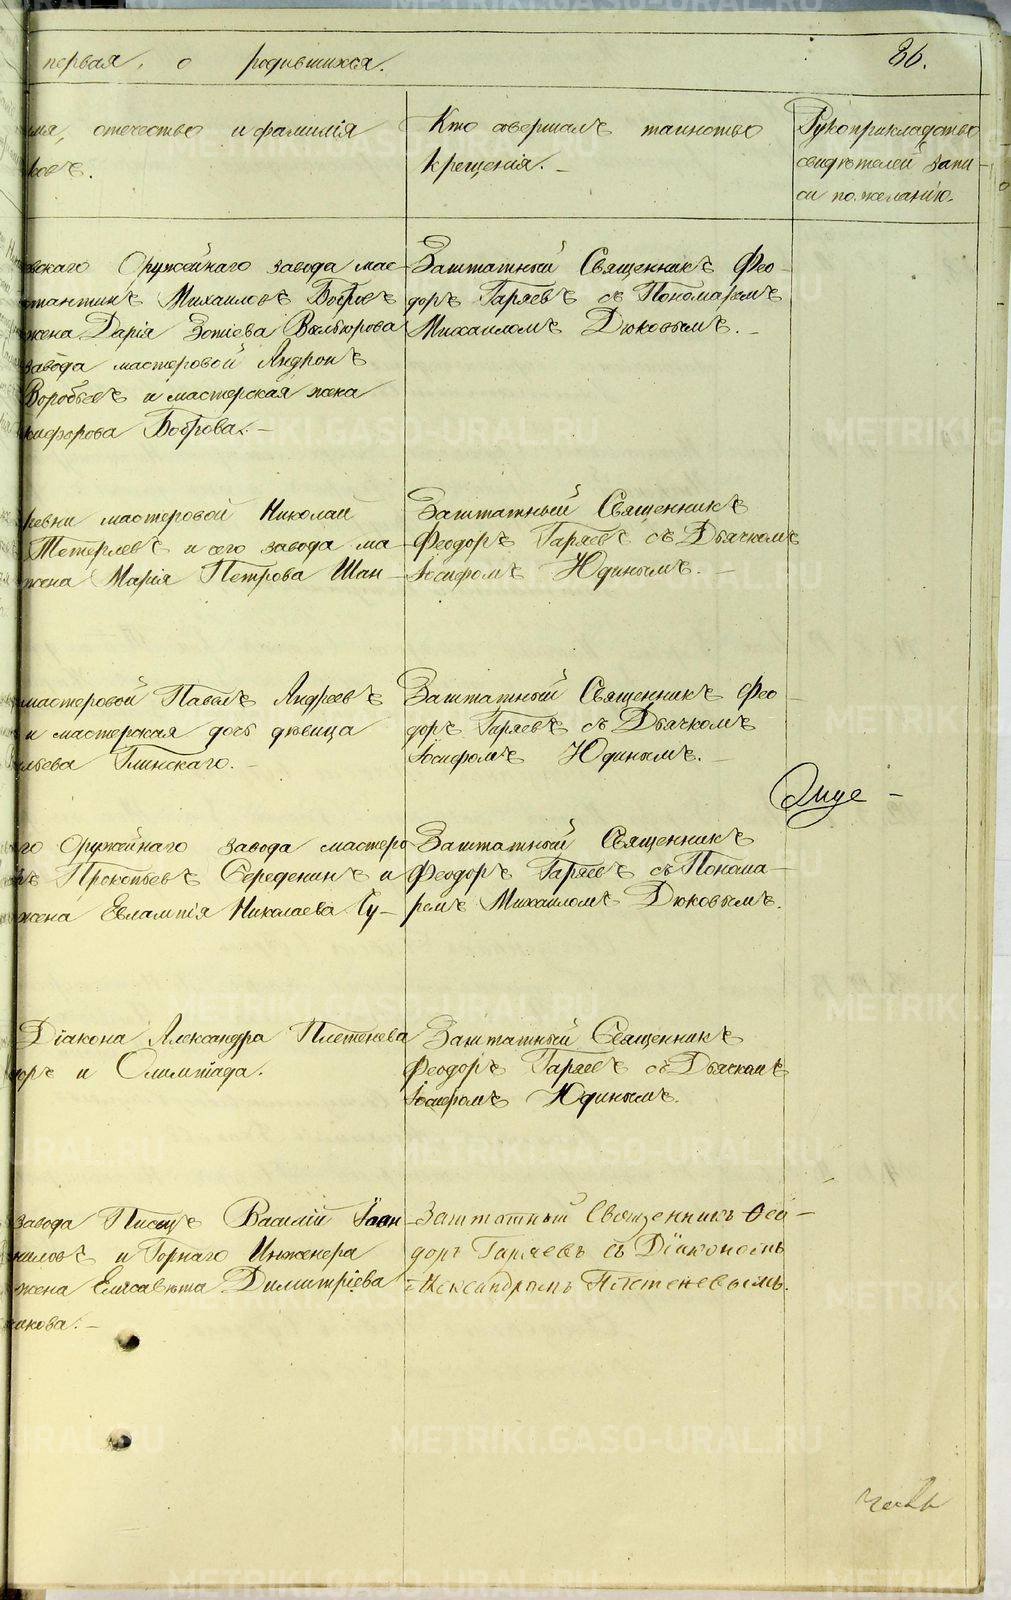 первая, о родившихся.
86.
имя, отечество и фамилія
ковъ.
Кто совершалъ таинство
крещенія.
Рукоприкладство
свидѣтелей запи-
си по желанію.
вскаго Оружейнаго завода мас-
стантинъ Михаиловъ Бобровъ
жена Дарія Зотіева
завода мастеровой Андронъ
Воробьевъ и мастерская жена
кифорова Боброва.
Заштатный Священникъ Фео-
доръ Гаряевъ съ Пономаремъ
Михаиломъ Дюковымъ.
ревни мастеровой Николай
Тетерлевъ и сего завода ма-
жена Марія Петрова Шан-
Заштатный Священникъ
Феодоръ Гаряевъ съ Дьячкомъ
Іосифомъ Юдинымъ.
мастеровой Павелъ Андреевъ
и мастерская дочь дѣвица
льева Глинскаго.
Заштатный Священникъ Фео-
доръ Гаряевъ съ Дьячкомъ
Іосифомъ Юдинымъ.
го Оружейнаго завода мастеро
ръ Прокопьевъ Середенинъ и
жена Евлампія Николаева Гу-
Заштатный Священникъ
Феодоръ Гаряевъ съ Понома-
ремъ Михаиломъ Дюковымъ.
Діакона Александра Плетенева
доръ и Олимпіада.
Заштатный Священникъ
Феодоръ Гаряевъ съ Дьячкомъ
Іосифомъ Юдинымъ.
завода Писецъ Василій Іоан-
ниловъ и Горнаго Инженера
жена Елисавѣта Димитріева
никова.
Заштатный Священникъ Фео-
доръ Гаряевъ съ Діакономъ
Александромъ Плетеневымъ.
METRIKI.GASO-URAL.RU